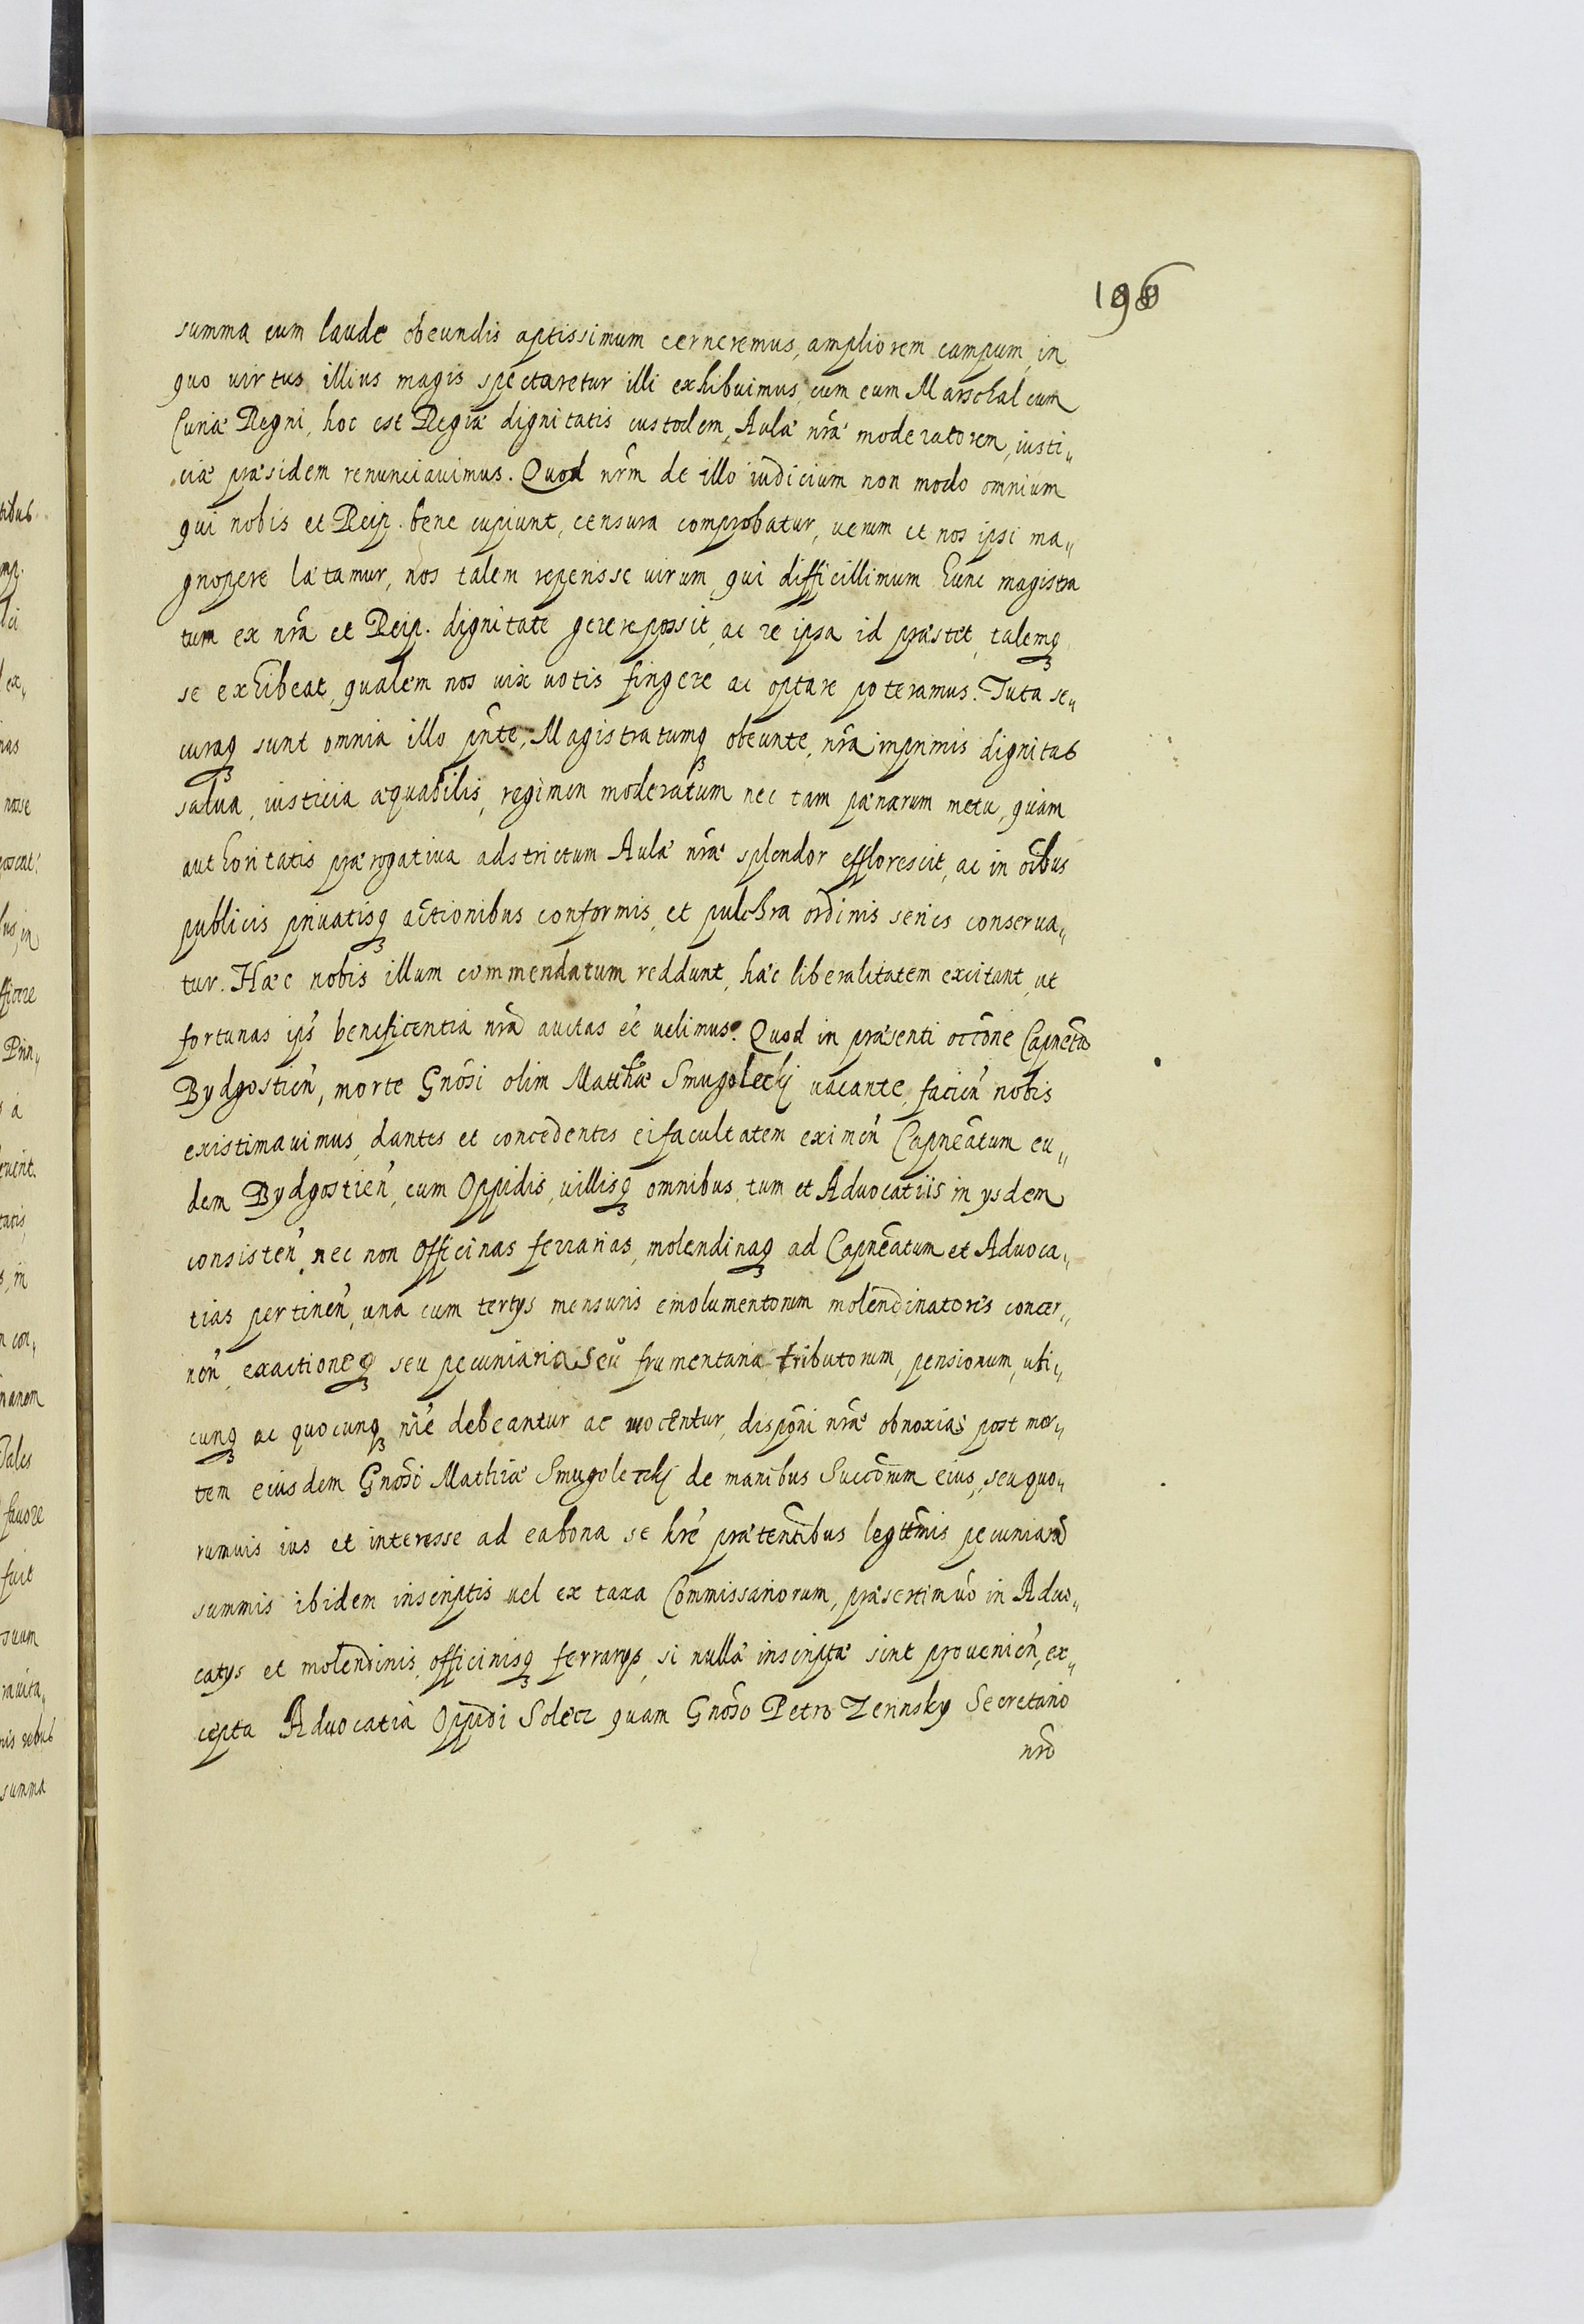 198
summa cum laude obeundis aptissimum cerneremus, ampliorem campum, in
quo uirtus illius magis spectaretur illi exhibuimus, cum eum Marschalcum
Curiæ Regni, hoc est Regiæ dignitatis custodem, Aulæ nr̃æ moderatorem, iusti„
ciæ præsidem renunciauimus. Quod nr̃m de illo iudicium non modo omnium
qui nobis et Reip. bene cupiunt, censura comprobatur, uerum et nos ipsi ma„
gnopere lætamur, nos talem reperisse uirum, qui difficillimum hunc magistra
tum ex nr̃a et Reip. dignitate gerere possit, ac re ipsa id præstet, talemqꝫ
se exhibeat, qualem nos uix uotis fingere ac optare poteramus. Tuta se„
curaqꝫ sunt omnia illo pñte, Magistratumqꝫ obeunte, nr̃a inprimis dignitas
salua, iusticia æquabilis, regimen moderatum nec tam pænarum metu, quàm
authoritatis prærogatiua adstrictum Aulæ nr̃æ splendor efflorescit, ac in oı̃bus
publicis priuatisqꝫ actionibus conformis, et pulchra ordinis series conserua„
tur. Hæc nobis illum commendatum reddunt, hæc liberalitatem excitant, ut
fortunas ips̃ beneficentia nr̃a auctas ee̋ uelimus. Quod in præsenti occõne Capneatũ
Bydgostien̄, morte Gnõsi olim Matthiæ Smugolecky uacante, facien̄ nobis
existimauimus, dantes et concedentes ei facultatem eximen̄ Capneãtum eu„
dem Bydgostien̄, cum Oppidis, uillisqꝫ omnibus, tum et Aduocatiis in ysdem
consisten̄, nec non Officinas ferrarias, molendinaqꝫ ad Capneãtum et Aduoca„
tias pertinen̄, una cum tertys mensuris emolumentorum molendinatoris concer„
nen̄, exactioneqꝫ seu pecuniaria seu frumentaria tributorum, pensionum, uti„
cunqꝫ ac quocunqꝫ nı̃e debeantur ac uocentur, dispõni nr̃æ obnoxias post mor„
tem eiusdem Gnõsi Mathiæ Smugolecky de manibus Succõrum eius, seu quo„
rumuis ius et interesse ad ea bona se hr̃e prætentĩbus legittı̃mis pecuniarũ
summis ibidem inscriptis uel ex taxa Commissariorum, præsertim uo̊ in Aduo„
catys et molendinis, officinisqꝫ ferrarys, si nullæ inscriptæ sint prouenien̄, ex„
cepta Aduocatia Oppidi Solecz quam Gnõso Petro Zerinsky Secretario
nrõ